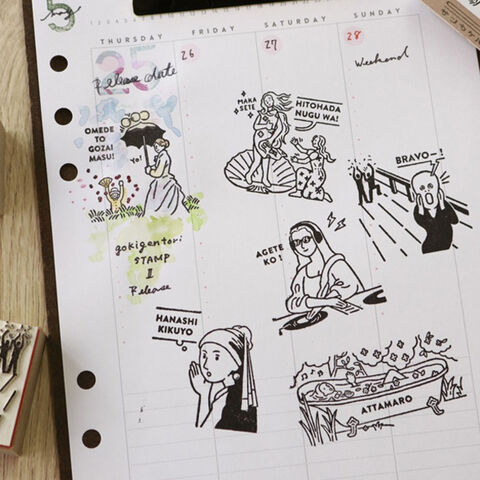 5
THURSDAY FRIDAY SATURDAY SUNDAY
25 26 27 28
Release date
Weekend
OMEDE
TO
GOZAI
MASU!
YO!
MAKA
SETE
HITOHADA
NUGU WA!
BRAVO-!
gokigentori
STAMP
II
Release
AGETE
KO!
HANASHI
KIKUYO
ATTAMARO